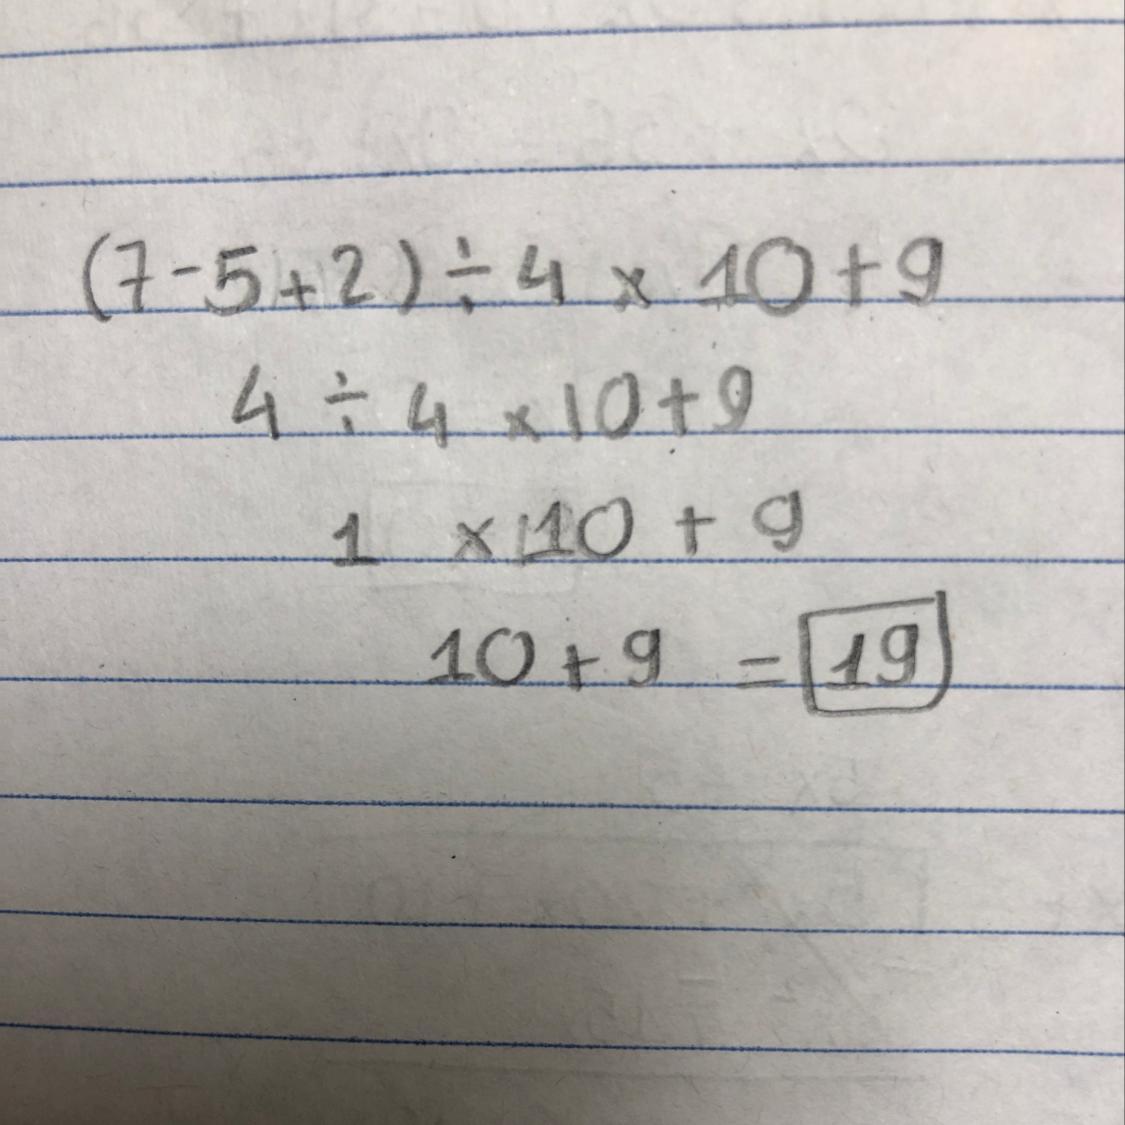 (7-5+2)÷4 × 10+9
4 ÷ 4 ×10+9
1 ×10 + 9
10+9 = 19